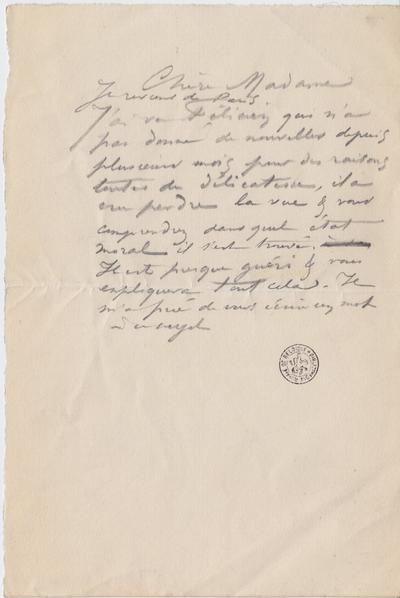 Chère Madame
Je reviens de Paris.
J'ai vu Félicien qui n'a
pas donné de nouvelles depuis
plusieurs mois pour des raisons
toutes de délicatesse, il a
cru perdre la vue & vous
comprendrez dans quel état
moral il s'est trouvé.
Il est presque guéri & vous
expliquera tout cela. Il
m'a prié de vous écrire un mot
à ce sujet